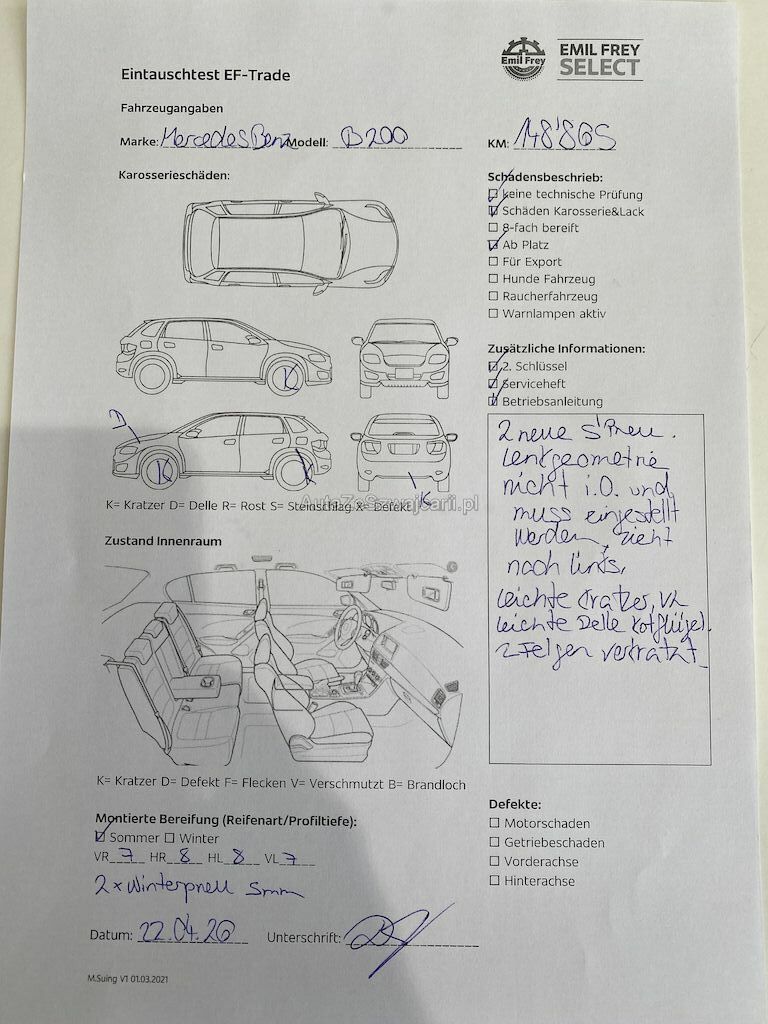 Eintauschtest EF-Trade
Emil Frey
EMIL FREY
SELECT
Fahrzeugangaben
Marke: Mercedes Benz Modell: B200 KM: 148'865
Karosserieschäden:
Schadensbeschrieb:
keine technische Prüfung
Schäden Karosserie&Lack
8-fach bereift
Ab Platz
Für Export
Hunde Fahrzeug
Raucherfahrzeug
Warnlampen aktiv
K
Zusätzliche Informationen:
2. Schlüssel
Serviceheft
Betriebsanleitung
D
K K
K
K= Kratzer D= Delle R= Rost S= Steinschlag X= Defekt
AutaZeSzwajcarii.pl
2 neue S'Pneu.
Lenkgeometrie
nicht i.O. und
muss eingestellt
werden, zieht
nach links.
leichte Kratzer,
leichte Delle Kotflügel.
2 Felgen verkratzt
Zustand Innenraum
K= Kratzer D= Defekt F= Flecken V= Verschmutzt B= Brandloch
Montierte Bereifung (Reifenart/Profiltiefe):
Sommer Winter
VR 7 HR 8 HL 8 VL 7
2x Winterpneu 5mm
Defekte:
Motorschaden
Getriebeschaden
Vorderachse
Hinterachse
Datum: 22.04.26 Unterschrift:
M.Suing V1 01.03.2021